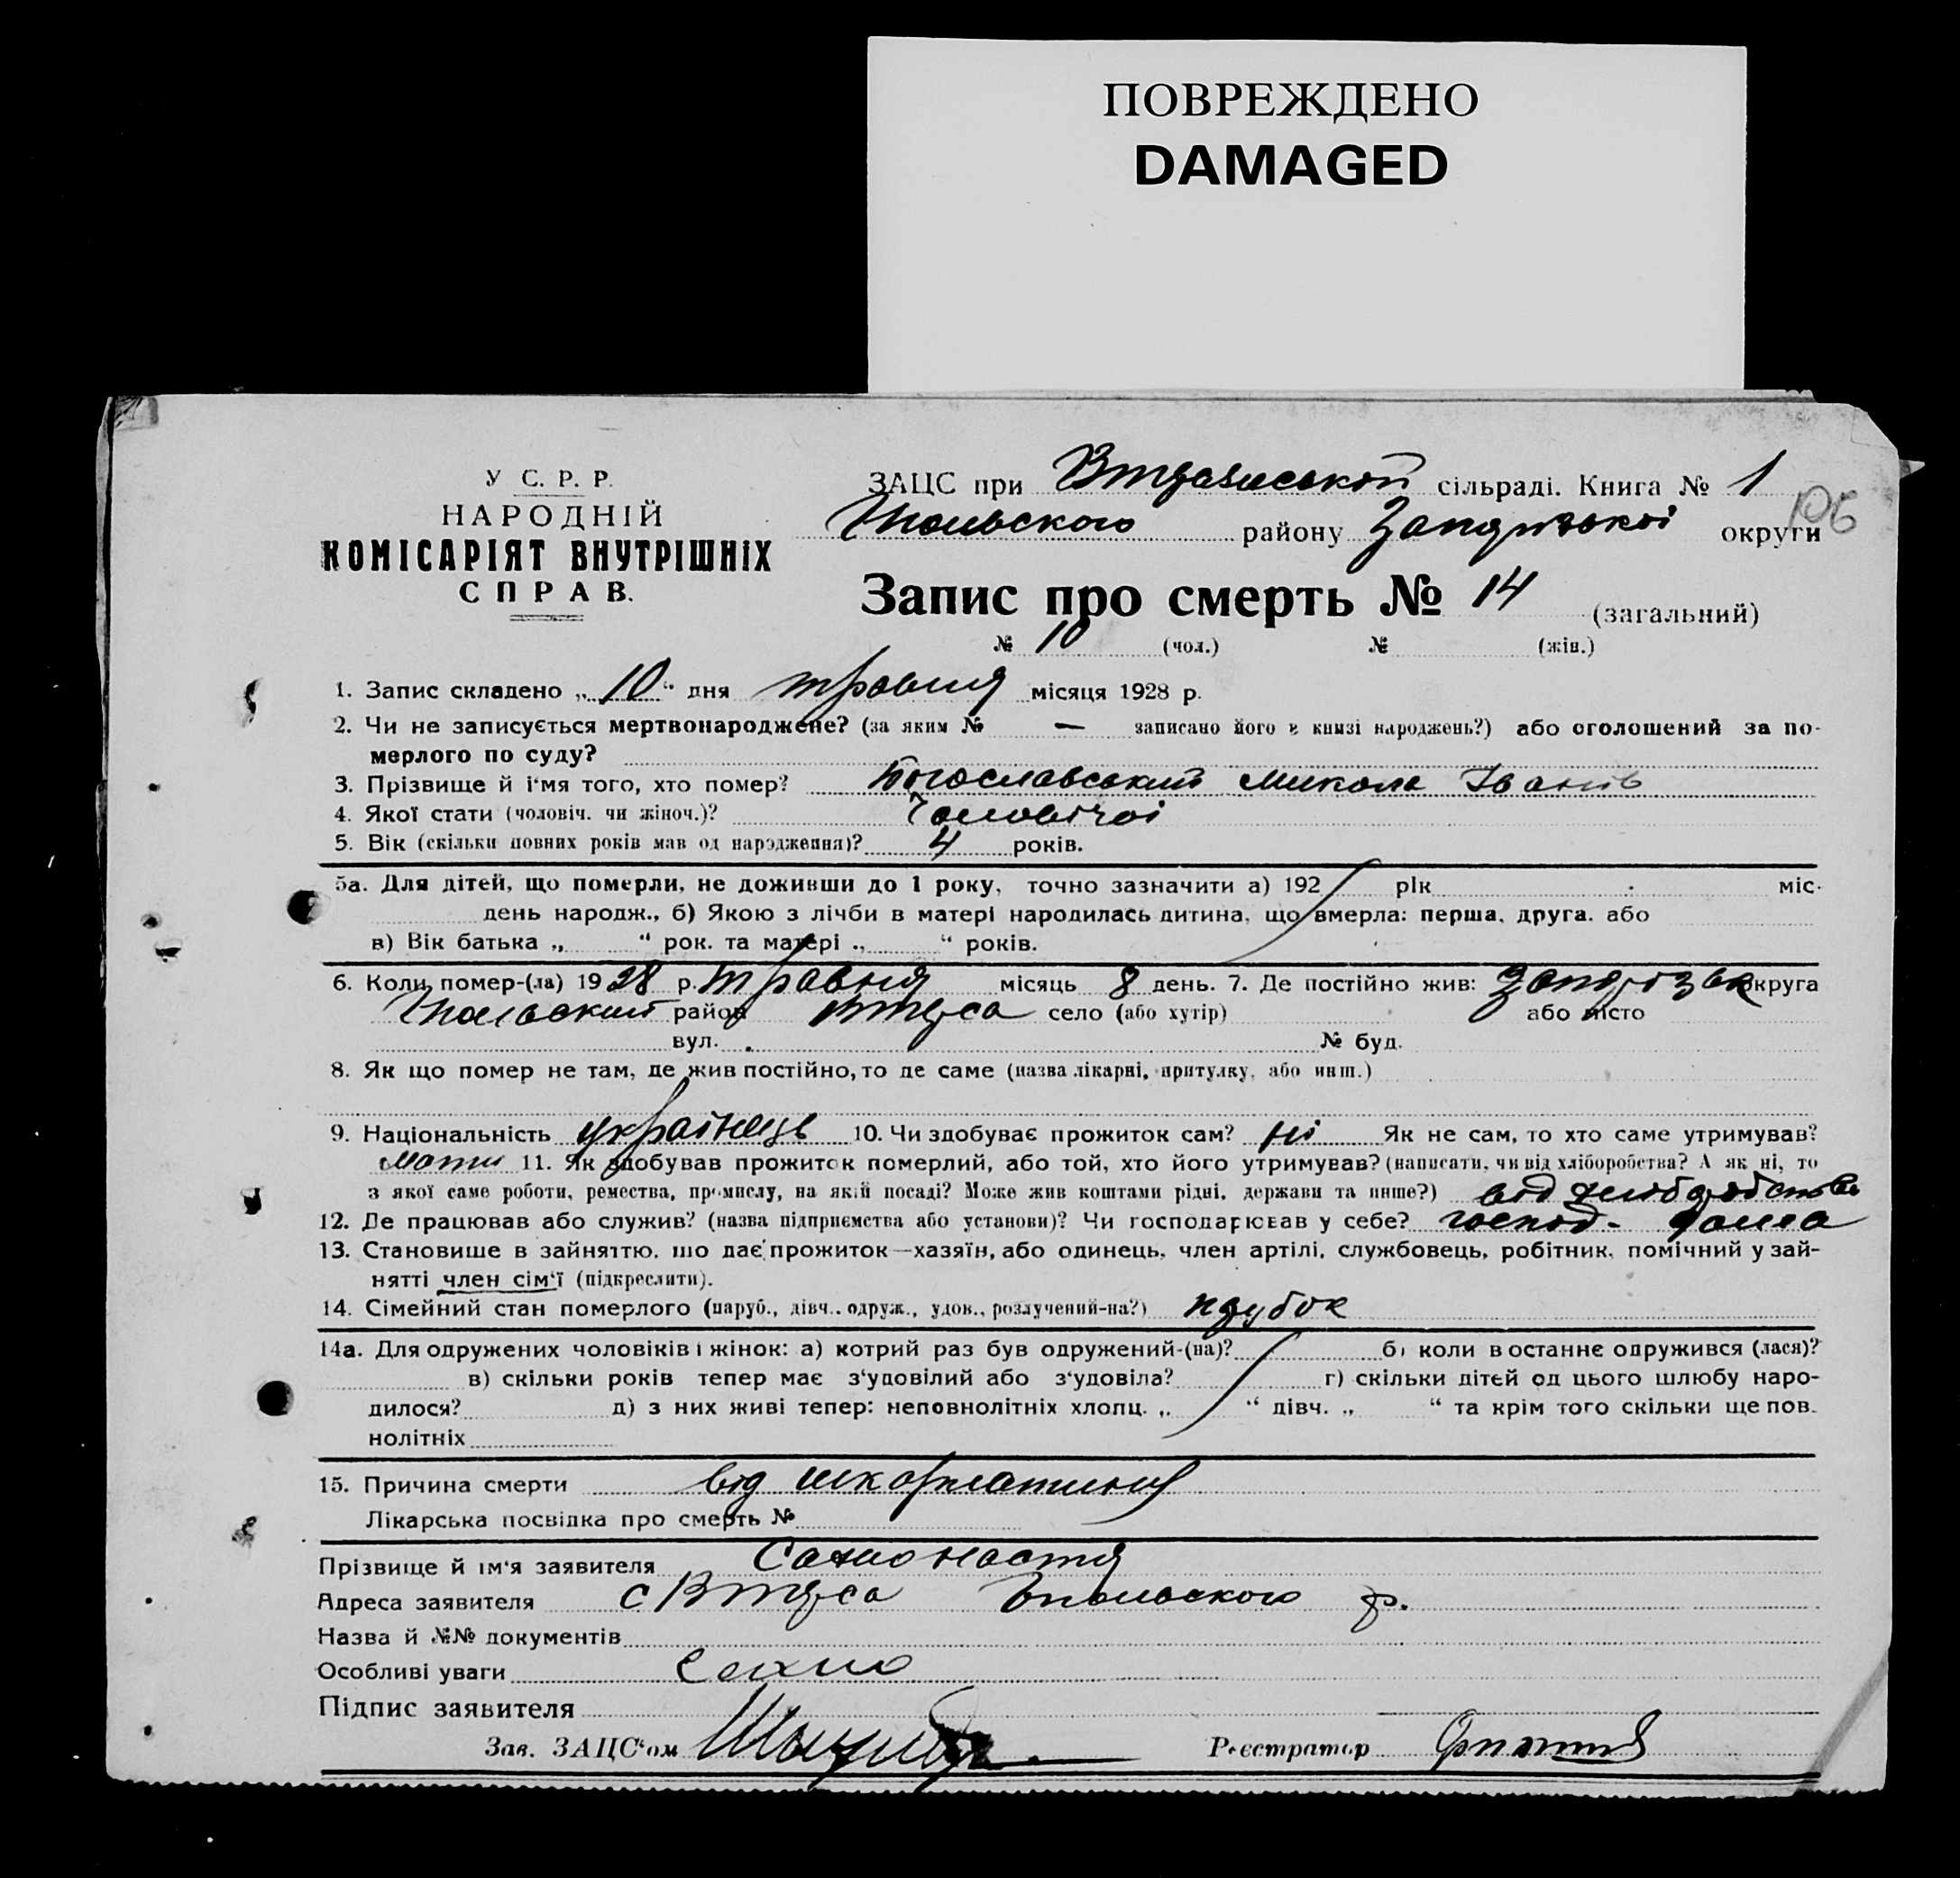 ПОВРЕЖДЕНО
DAMAGED
У С. Р. Р.
НАРОДНІЙ
КОМІСАРІЯТ ВНУТРІШНІХ
СПРАВ.
ЗАЦС при сільраді. Книга № 1
106
району округи
Запис про смерть № 14 (загальний)
№ 10 (чол.) № (жін.)
1. Запис складено „ 10 “ дня травня місяця 1928 р.
2. Чи не записується мертвонароджене? (за яким № — записано його в книзі народжень?) або оголошений за по-
мерлого по суду?
3. Прізвище й і‘мя того, хто помер? Богославський Микола Іванів
4. Якої стати (чоловіч. чи жіноч.)? Чоловічої
5. Вік (скільки повних років мав од народження)? 4 років.
5а. Для дітей, що померли, не доживши до 1 року, точно зазначити а) 192 рік міс.
день народж., б) Якою з лічби в матері народилась дитина, що вмерла: перша, друга. або
в) Вік батька „ “ рок. та матері „ “ років.
6. Коли помер-(ла) 1928 р. травня місяць 8 день. 7. Де постійно жив: округа
район Втраса село (або хутір) або місто
вул. № буд.
8. Як що помер не там, де жив постійно, то де саме (назва лікарні, притулку, або инш.)
9. Національність українець 10. Чи здобуває прожиток сам? ні Як не сам, то хто саме утримував?
мати 11. Як здобував прожиток померлий, або той, хто його утримував? (написати, чи від хліборобства? А як ні, то
з якої саме роботи, ремества, промислу, на якій посаді? Може жив коштами рідні, держави та инше?) від хліборобства
12. Де працював або служив? (назва підприємства або установи)? Чи господарював у себе? господ. дома
13. Становише в зайняттю, що дає прожиток—хазяїн, або одинець, член артілі, службовець, робітник, помічний у зай-
нятті член сім‘ї (підкреслити).
14. Сімейний стан померлого (паруб., дівч., одруж., удов., розлучений-на?) парубок
14а. Для одружених чоловіків і жінок: а) котрий раз був одружений-(на)? б) коли в останнє одружився (лася)?
в) скільки років тепер має з‘удовілий або з‘удовіла? г) скільки дітей од цього шлюбу наро-
дилося? д) з них живі тепер: неповнолітніх хлопц. „ “ дівч. „ “ та крім того скільки ще пов.
нолітніх
15. Причина смерти від шкарлатини
Лікарська посвідка про смерть №
Прізвище й ім‘я заявителя Сахно Настя
Адреса заявителя с р.
Назва й №№ документів
Особливі уваги Сахно
Підпис заявителя
Зав. ЗАЦС‘ом Реєстратор